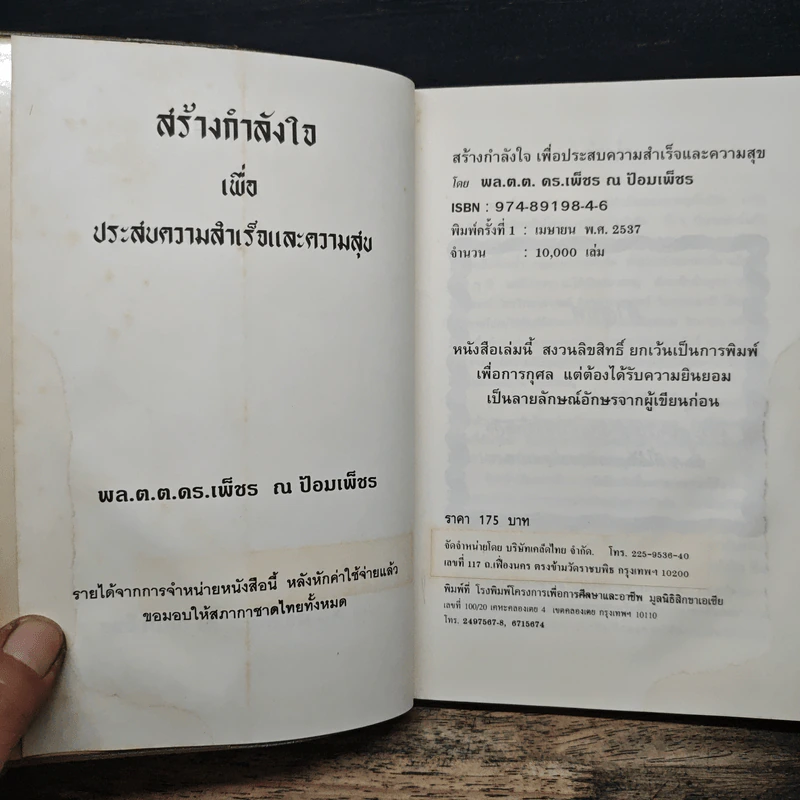 สร้างกำลังใจ
เพื่อ
ประสบความสำเร็จและความสุข
พล.ต.ต.ดร.เพ็ชร ณ ป้อมเพ็ชร
รายได้จากการจำหน่ายหนังสือนี้ หลังหักค่าใช้จ่ายแล้ว
ขอมอบให้สภากาชาดไทยทั้งหมด
สร้างกำลังใจ เพื่อประสบความสำเร็จและความสุข
โดย พล.ต.ต. ดร.เพ็ชร ณ ป้อมเพ็ชร
ISBN : 974-89198-4-6
พิมพ์ครั้งที่ 1 : เมษายน พ.ศ. 2537
จำนวน : 10,000 เล่ม
หนังสือเล่มนี้ สงวนลิขสิทธิ์ ยกเว้นเป็นการพิมพ์
เพื่อการกุศล แต่ต้องได้รับความยินยอม
เป็นลายลักษณ์อักษรจากผู้เขียนก่อน
ราคา 175 บาท
จัดจำหน่ายโดย บริษัทเคล็ดไทย จำกัด. โทร. 225-9536-40
เลขที่ 117 ถ.เฟื่องนคร ตรงข้ามวัดราชบพิธ กรุงเทพฯ 10200
พิมพ์ที่ โรงพิมพ์โครงการเพื่อการศึกษาและอาชีพ มูลนิธิสิกขาเอเซีย
เลขที่ 100/20 เคหะคลองเตย 4 เขตคลองเตย กรุงเทพฯ 10110
โทร. 2497567-8, 6715674